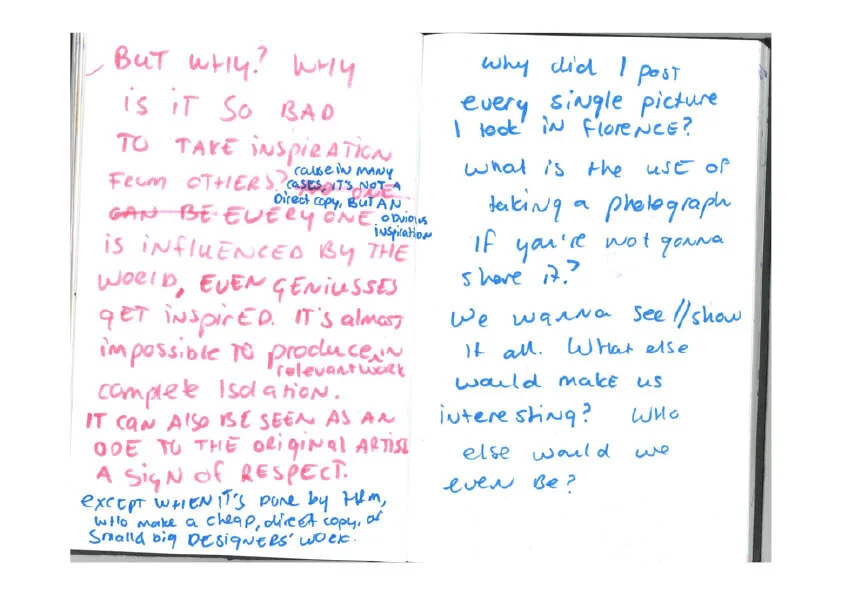 BUT WHY? WHY
IS IT SO BAD
TO TAKE INSPIRATION
FROM OTHERS? NO ONE
cause in many
cases, it's not a
Direct copy, but an
obvious
inspiration
CAN BE EVERYONE
IS INFLUENCED BY THE
WORLD, EVEN GENIUSSES
GET INSPIRED. IT'S almost
impossible TO produce
relevant work
in
complete Isolation.
IT CAN ALSO BE SEEN AS AN
ODE TO THE ORIGINAL ARTIST
A SIGN OF RESPECT.
EXCEPT WHEN IT'S DONE by H&M,
who make a cheap, direct copy, of
big DESIGNERS' WORK.
Why did I post
every single picture
I took in FLORENCE?
What is the use of
taking a photograph
If you're not gonna
share it?
We wanna see//show
it all. What else
would make us
interesting? Who
else would we
even be?